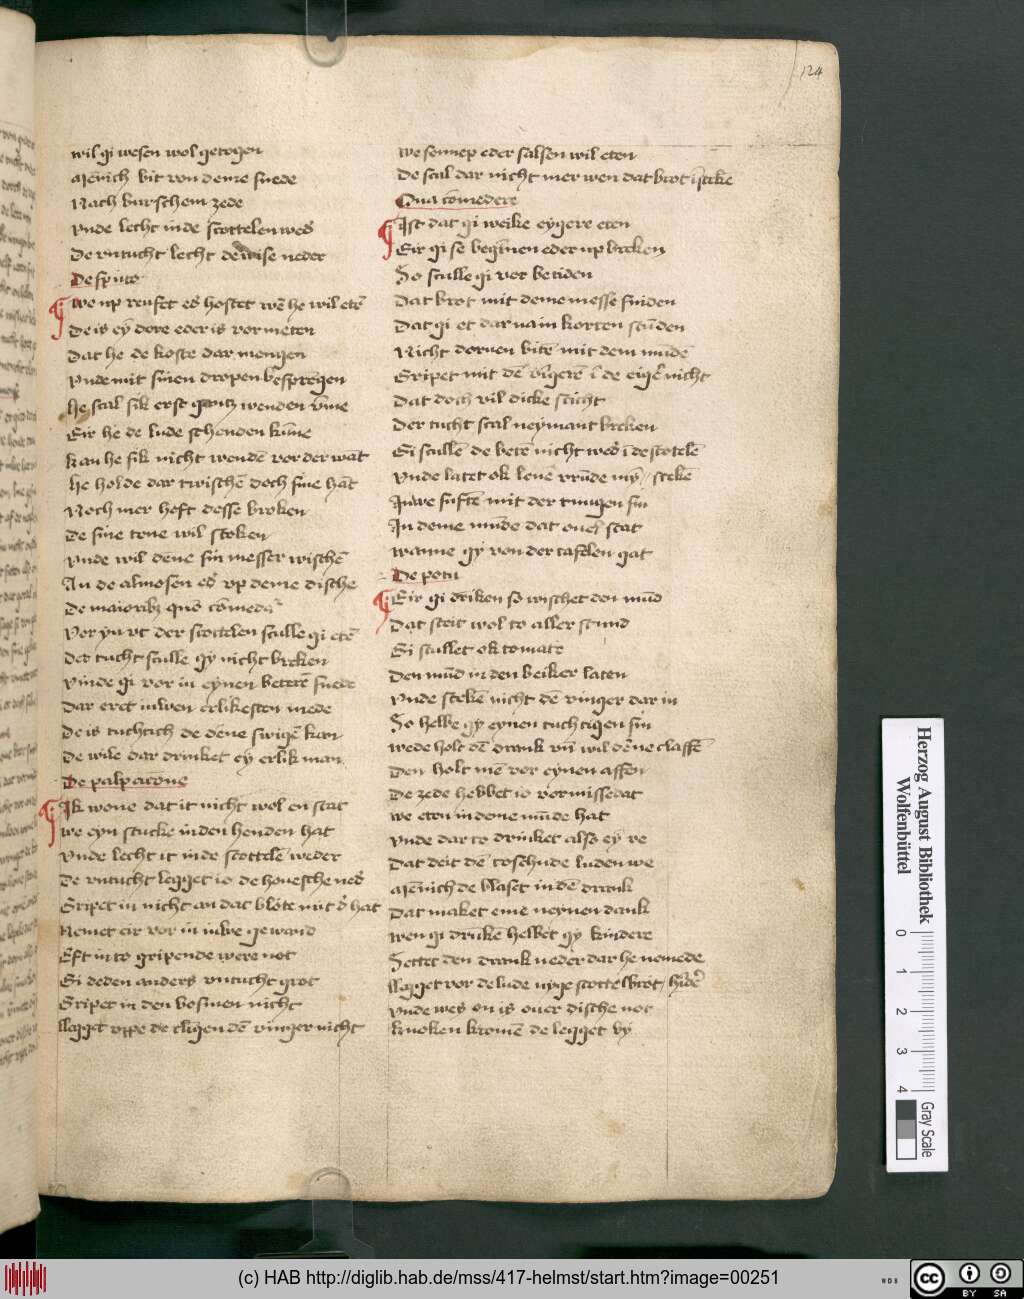 124
wil gi wesen wol getogen
Mēnich bit von deme snede
Nach burschem zede
vnde lecht in de scottelen wes
De vntucht lecht de wise neder
De sputo
we up reusset es hostet wē he wil etē
De is eȳ dore eder is vormeten
Dat he de koste dar mengen
vnde mit sinen dropen besprēgen
he scal sik erst wenden vme
Eir he de lude schenden kūne
kan he sik nicht wendē vor der wāt
he holde dar twischē doch sine hāt
Noch mer heft desse broken
De sine tene wil stoken
vnde wil dene sin messer wischē
An de almosen es vp deme dische
De maioribꝫ
Vor yu vt der scottelen sculle gi etē
der tucht sculle gy nicht breken
vinde gi vor iu eynen beterē snede
Dar eret iuwen erlikesten mede
De is tuchtich de dene swigē kan
De wile dar drinket eȳ erlik man
De palpatione
Ik wene dat it nicht wol en stat
we eyn stucke in den henden hat
vnde lecht it in de scottelē weder
De vntucht legget io de houesche neder
Gripet iu nicht an dat blote mit der hāt
Nemet eir vor iu iuwe gewand
Eft iu to gripende were not
Gi deden anders vntucht grot
Gripet in den bosmen nicht
Legget vppe de elligen dē vinger nicht
we sennep eder salsen wil eten
De scal dar nicht mer wen dat brot īsteke
Oua comedere
Ist dat gi weike eygere eten
Eir gi se begīnen eder up breken
So sculle gi vor betiden
Dat brot mit deme messe sniden
Dat gi et dar na in korten stūden
Nicht doruen bitē mit dem mūde
Gripet mit dē vīgerē ī de eiger nicht
Dat doch vil dicke scicht
Der tucht scal neymant breken
Gi scullē de betē nicht weder ī de scotelē
vnde latet ok leuē vrūde mȳ // stekē
Iuwe suftē mit der tungen sin
In deme mūde dat ouel stat
wanne gy von der tafelen gat
De potu
Eir gi drīken so wischet den mūd
Dat steit wol to aller stund
Gi scullet ok to mate
Den mūd in den beiker laten
vnde stekē nicht dē vinger dar in
So hebbe gy eynen tuchtigen sin
wede holt dē drank vn̄ wil dēne claffē
Den holt mē vor eynen affen
De zede hebbet io vormissedat
we eten in deme mūde hat
vnde dar to drinket alse eȳ ve
Dat deit dē toschude luden we
Mēnich de blaset in dē drank
Dat maket eme neynen dank
wen gi drinkē hebbet gy kindere
Settet den drank neder dar he nemede
Legget vor de lude nyge scottel brot / hinder
vnde wes en is ouer dische not
knoken kromē de legget by
Herzog August Bibliothek
Wolfenbüttel
0 1 2 3 4
Gray Scale
(c) HAB http://diglib.hab.de/mss/417-helmst/start.htm?image=00251
WDB
CC BY SA